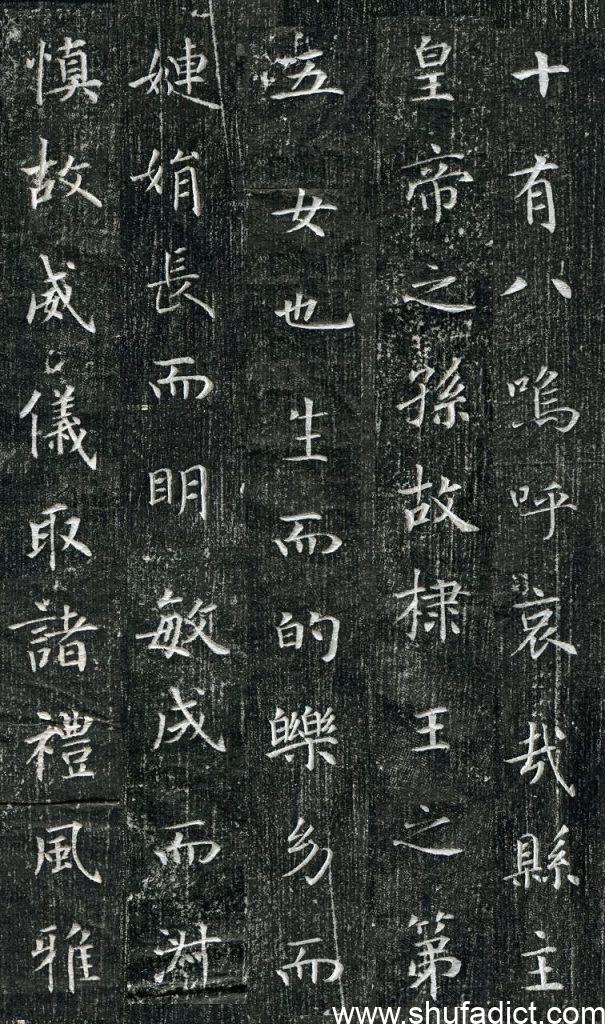 十有八嗚呼哀哉縣主
皇帝之孫故棣王之第
五女也生而的皪幼而
㜕娟長而明敏成而淑
慎故威儀取諸禮風雅
www.shufadict.com